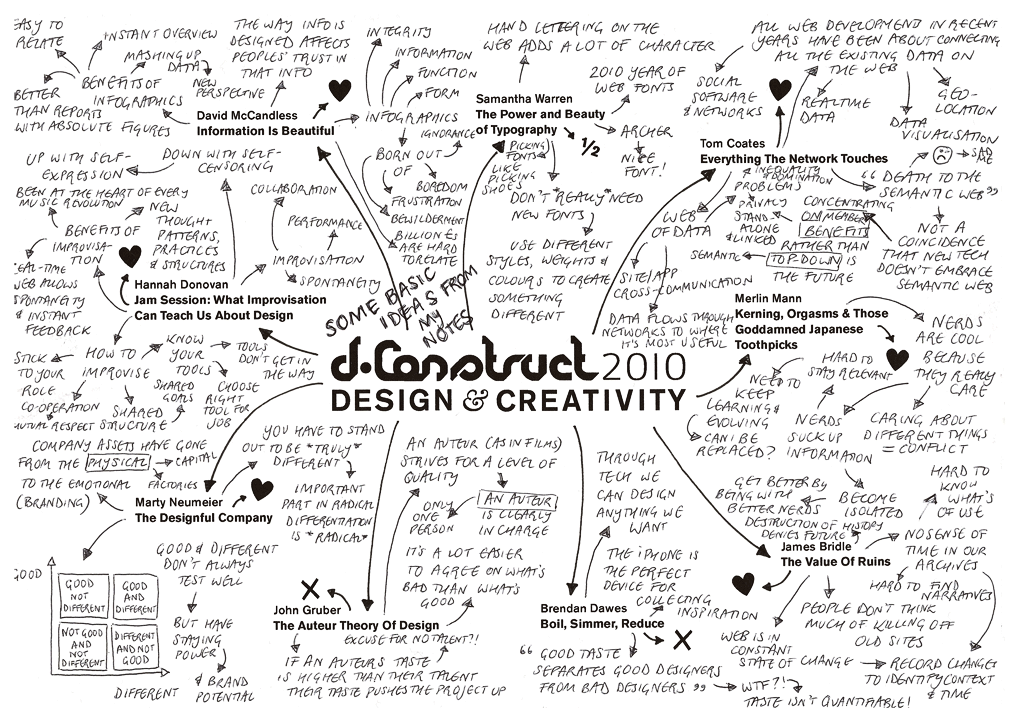 EASY TO
RELATE
INSTANT OVERVIEW
MASHING UP
DATA
NEW
PERSPECTIVE
BENEFITS OF
INFOGRAPHICS
BETTER
THAN REPORTS
WITH ABSOLUTE FIGURES
THE WAY INFO IS
DESIGNED AFFECTS
PEOPLES' TRUST IN
THAT INFO
David McCandless
Information Is Beautiful
INTEGRITY
INFORMATION
FUNCTION
FORM
INFOGRAPHICS
IGNORANCE
BORN OUT
OF
BOREDOM
FRUSTRATION
BEWILDERMENT
BILLIONS
ARE HARD
TO RELATE
HAND LETTERING ON THE
WEB ADDS A LOT OF CHARACTER
2010 YEAR OF
WEB FONTS
Samantha Warren
The Power and Beauty
of Typography
1/2
ARCHER
NICE
FONT!
PICKING
FONTS
LIKE
PICKING
SHOES
DON'T *REALLY* NEED
NEW FONTS
USE DIFFERENT
STYLES, WEIGHTS &
COLOURS TO CREATE
SOMETHING
DIFFERENT
ALL WEB DEVELOPMENT IN RECENT
YEARS HAVE BEEN ABOUT CONNECTING
ALL THE EXISTING DATA ON
THE WEB
SOCIAL
SOFTWARE
& NETWORKS
REALTIME
DATA
GEO-
LOCATION
DATA
VISUALISATION
Tom Coates
Everything The Network Touches
SAD
ME
"DEATH TO THE
SEMANTIC WEB"
INEQUALITY
DOMINATION
PROBLEMS
PRIVACY
STAND
ALONE
& LINKED
SEMANTIC
WEB
OF DATA
CONCENTRATING
ON MEMBER
BENEFITS
RATHER THAN
TOP-DOWN IS
THE FUTURE
NOT A
COINCIDENCE
THAT NEW TECH
DOESN'T EMBRACE
SEMANTIC WEB
SITE/APP
CROSS-COMMUNICATION
DATA FLOWS THROUGH
NETWORKS TO WHERE
IT'S MOST USEFUL
UP WITH SELF-
EXPRESSION
DOWN WITH SELF-
CENSORING
BEEN AT THE HEART OF EVERY
MUSIC REVOLUTION
NEW
THOUGHT
PATTERNS,
PRACTICES
& STRUCTURES
BENEFITS OF
IMPROVISA-
TION
REAL-TIME
WEB ALLOWS
SPONTANEITY
& INSTANT
FEEDBACK
COLLABORATION
PERFORMANCE
IMPROVISATION
SPONTANEITY
Hannah Donovan
Jam Session: What Improvisation
Can Teach Us About Design
STICK
TO YOUR
ROLE
HOW TO
IMPROVISE
KNOW
YOUR
TOOLS
TOOLS
DON'T GET IN
THE WAY
CHOOSE
RIGHT
TOOL FOR
JOB
SHARED
GOALS
SHARED
STRUCTURE
CO-OPERATION
MUTUAL RESPECT
SOME BASIC
IDEAS FROM
MY
NOTES
d.Construct 2010
DESIGN & CREATIVITY
Merlin Mann
Kerning, Orgasms & Those
Goddamned Japanese
Toothpicks
NERDS
ARE COOL
BECAUSE
THEY REALLY
CARE
HARD TO
STAY RELEVANT
NEED TO
KEEP
LEARNING &
EVOLVING
CAN I BE
REPLACED?
NERDS
SUCK UP
INFORMATION
CARING ABOUT
DIFFERENT THINGS
= CONFLICT
GET BETTER BY
BEING WITH
BETTER NERDS
BECOME
ISOLATED
COMPANY ASSETS HAVE GONE
FROM THE PHYSICAL
CAPITAL
FACTORIES
TO THE EMOTIONAL
(BRANDING)
YOU HAVE TO STAND
OUT TO BE *TRULY*
DIFFERENT
IMPORTANT
PART IN RADICAL
DIFFERENTIATION
IS *RADICAL*
Marty Neumeier
The Designful Company
GOOD
GOOD
NOT
DIFFERENT
GOOD
AND
DIFFERENT
NOT GOOD
AND
NOT
DIFFERENT
DIFFERENT
AND NOT
GOOD
DIFFERENT
GOOD & DIFFERENT
DON'T ALWAYS
TEST WELL
BUT HAVE
STAYING
POWER
& BRAND
POTENTIAL
AN AUTEUR (AS IN FILMS)
STRIVES FOR A LEVEL OF
QUALITY
AN AUTEUR
IS CLEARLY
IN CHARGE
ONLY
ONE
PERSON
IT'S A LOT EASIER
TO AGREE ON WHAT'S
BAD THAN WHAT'S
GOOD
John Gruber
The Auteur Theory Of Design
EXCUSE FOR NO TALENT?!
IF AN AUTEUR'S TASTE
IS HIGHER THAN THEIR TALENT
THEIR TASTE PUSHES THE PROJECT UP
THROUGH
TECH WE
CAN DESIGN
ANYTHING WE
WANT
THE iPHONE IS
THE PERFECT
DEVICE FOR
COLLECTING
INSPIRATION
Brendan Dawes
Boil, Simmer, Reduce
"GOOD TASTE
SEPARATES GOOD DESIGNERS
FROM BAD DESIGNERS"
WTF?!
TASTE ISN'T QUANTIFIABLE!
DESTRUCTION OF HISTORY
DENIES FUTURE
James Bridle
The Value Of Ruins
HARD TO
KNOW
WHAT'S
OF USE
NO SENSE OF
TIME IN OUR
ARCHIVES
HARD TO FIND
NARRATIVES
PEOPLE DON'T THINK
MUCH OF KILLING OFF
OLD SITES
WEB IS IN
CONSTANT
STATE OF CHANGE
RECORD CHANGES
TO IDENTIFY CONTEXT
& TIME